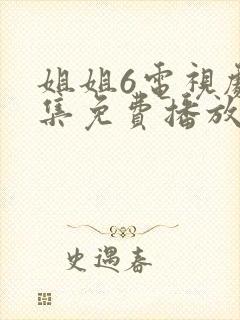 姐姐6電視劇
集免費播放
史遇春